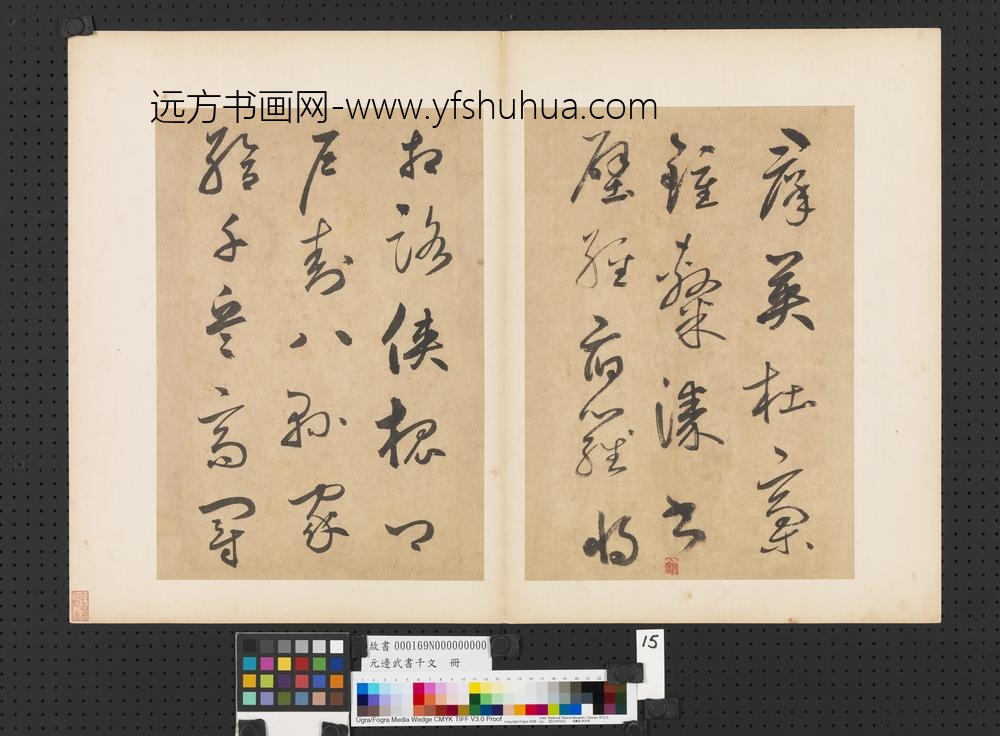 远方书画网-www.yfshuhua.com
群英杜稾
鍾隸漆书
壁经府罗将
相路侠槐卿
户封八县家
给千兵高冠
故書 000169N000000000
元邊武書千文 冊
15
Ugra/Fogra Media Wedge CMYK TIFF V3.0 Proof